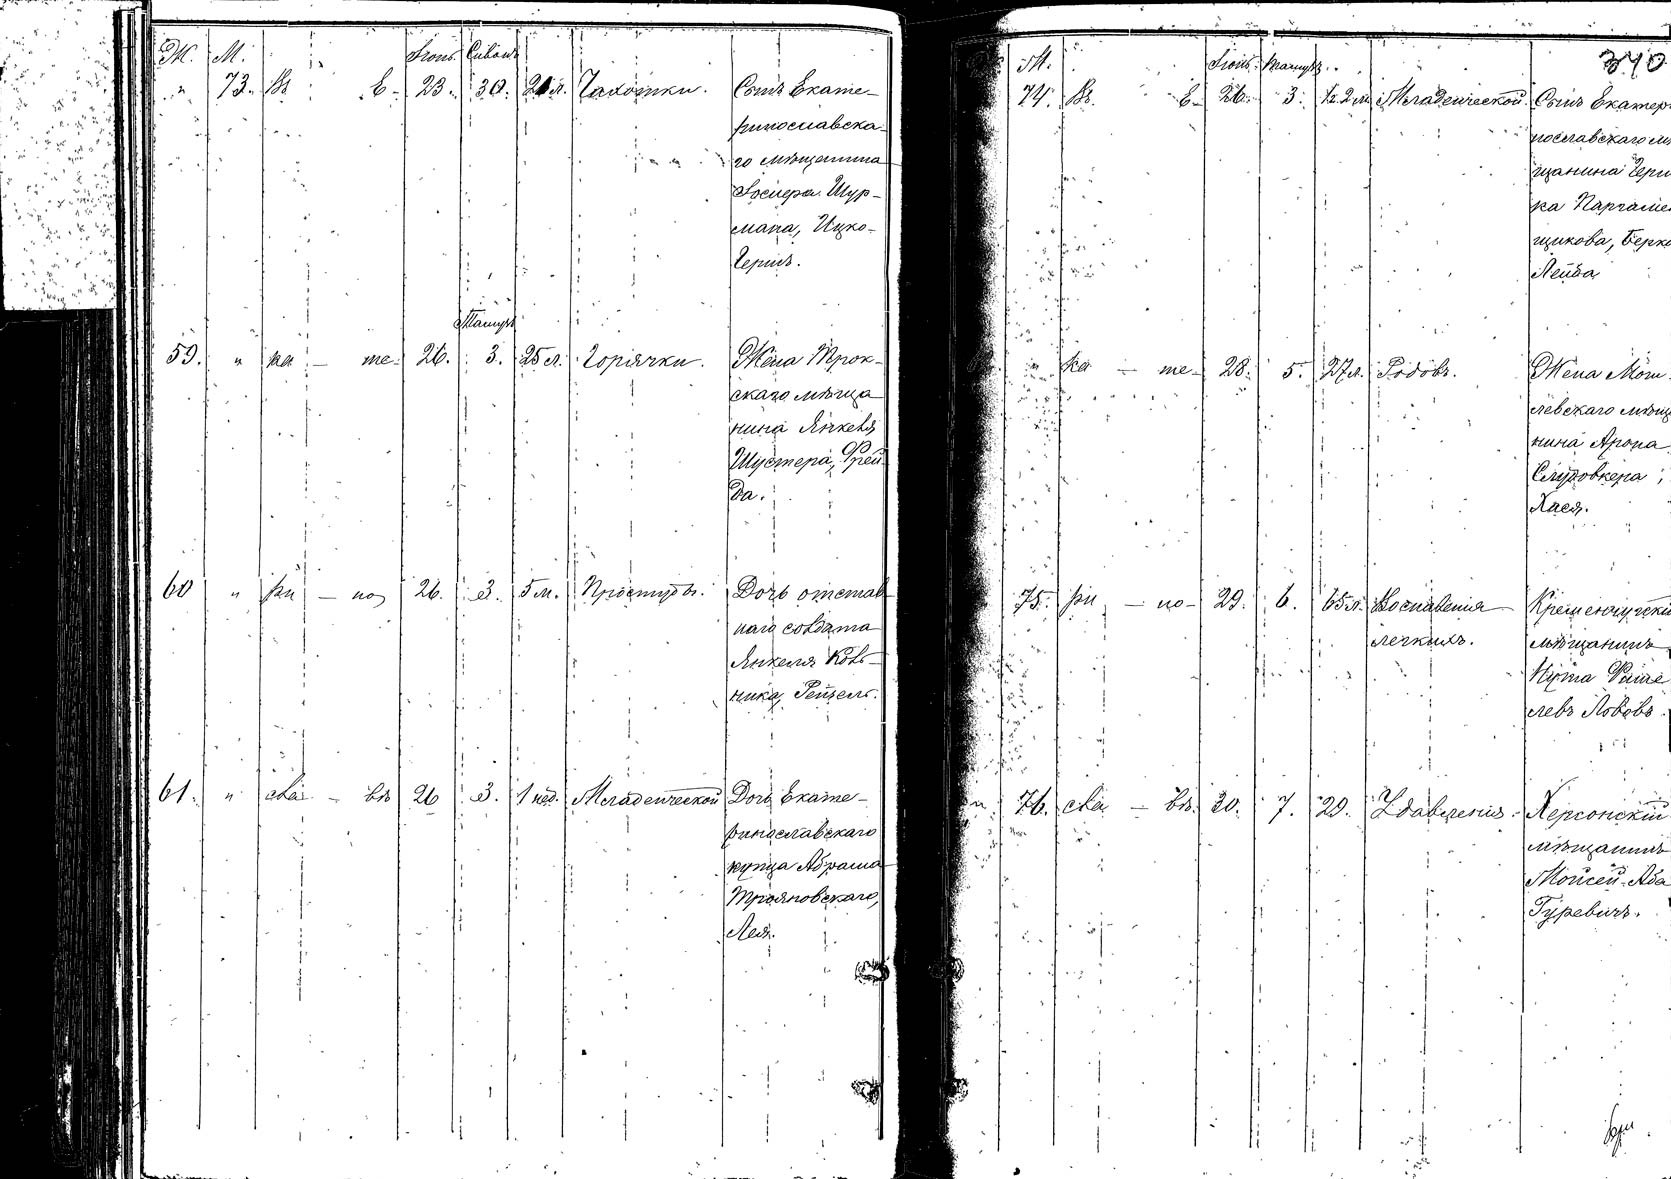 Ж. М. Іюнь. Сиванъ
" 73. Въ Е- 23. 30. 21 л. Чахотки. Сынъ Екате-
ринославска-
го мѣщанина
Іосифа Шур-
мана, Ицко-
Гершъ.
Тамузъ
59. " ка - те- 26. 3. 25 л. Горячки. Жена Трок-
скаго мѣща
нина Янкеля
Шустера, Фрей
да.
60 " ри - но 26. 3. 5 м. Простуды. Дочь отстав
наго солдата
Янкеля
ника, Рейзель.
61. " сла - въ 26 3. 1 нед. Младенческой Дочь Екате-
ринославскаго
купца Абрама
Трояновскаго,
Лея.
340
М. Іюнь. Тамузъ.
74. Въ. Е- 26. 3. 1/2 м. Младенческой. Сынъ Екатер
нославскаго м
щанина Герш
ка Паргаме
щикова, Берко
Лейба
" ка - те- 28. 5. 27 л. Родовъ. Жена Моги
левскаго мѣщ
нина Арона
Слуховкера,
Хася.
75. ри - но- 29. 6. 65 л. Воспаленія Кременчугскі
легкихъ. мѣщанинъ
Нута Фише
левъ Лововъ.
76. сла - въ. 30. 7. 29. Удавленія. Херсонскій
мѣщанинъ
Мойсей-Аба
Гуревичъ.